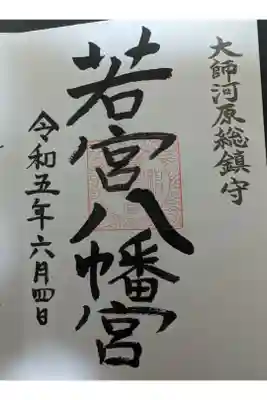 大師河原総鎮守
若宮八幡宮
令和五年六月四日